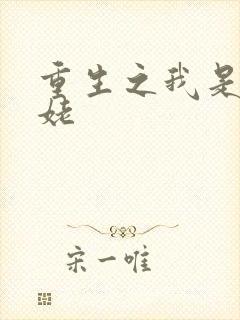 重生之我是
姥
宋一唯